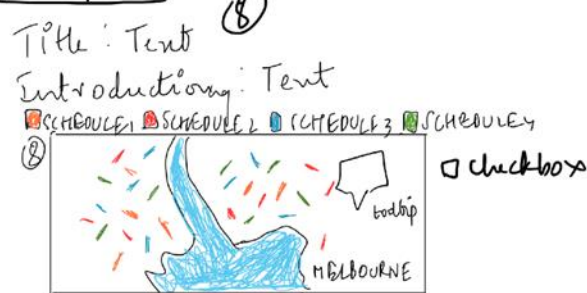 8
Title : Text
Introductiong : Text
SCHEDULE1 SCHEDULE 2 SCHEDULE 3 SCHEDULE4
8
checkbox
tooltip
MELBOURNE